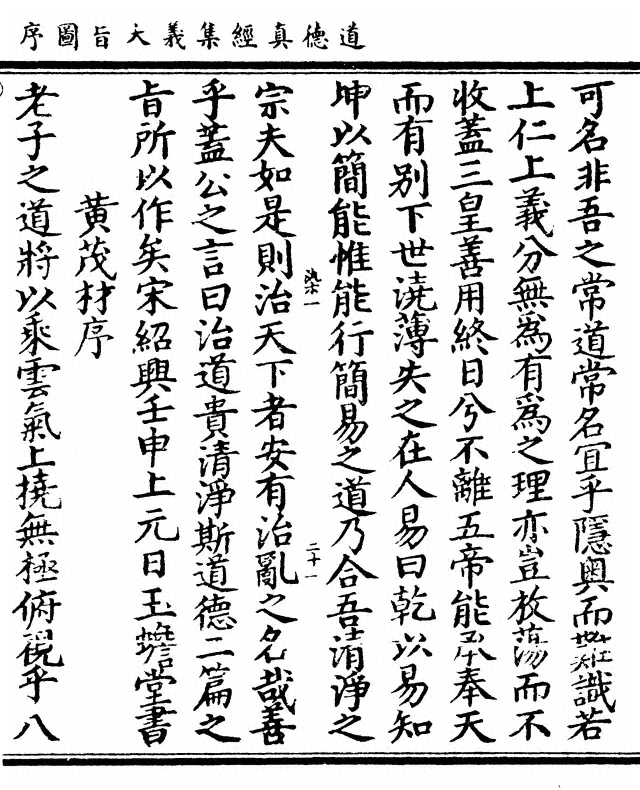 道德真經集義大旨圖序
可名非吾之常道常名宜乎隱奧而難識若
上仁上義分無爲有爲之理亦豈放蕩而不
收蓋三皇善用終日兮不離五帝能承奉天
而有別下世澆薄失之在人易曰乾以易知
坤以簡能惟能行簡易之道乃合吾清淨之
二十一
宗夫如是則治天下者安有治亂之名哉善
乎蓋公之言曰治道貴清淨斯道德二篇之
旨所以作矣宋紹興壬申上元日玉蟾堂書
黃茂材序
老子之道將以乘雲氣上撓無極俯視乎八